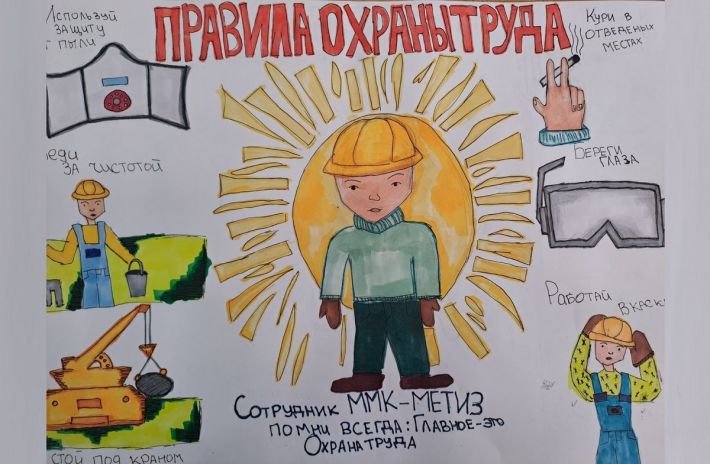 ПРАВИЛА ОХРАНЫ ТРУДА
Используй
защиту
т пыли
Кури в
отведеных
местах
Береги
глаза
еди
за чистотой
Работай
в каск
Сотрудник ММК-МЕТИЗ
помни всегда: Главное-это
Охрана труда
стой под краном